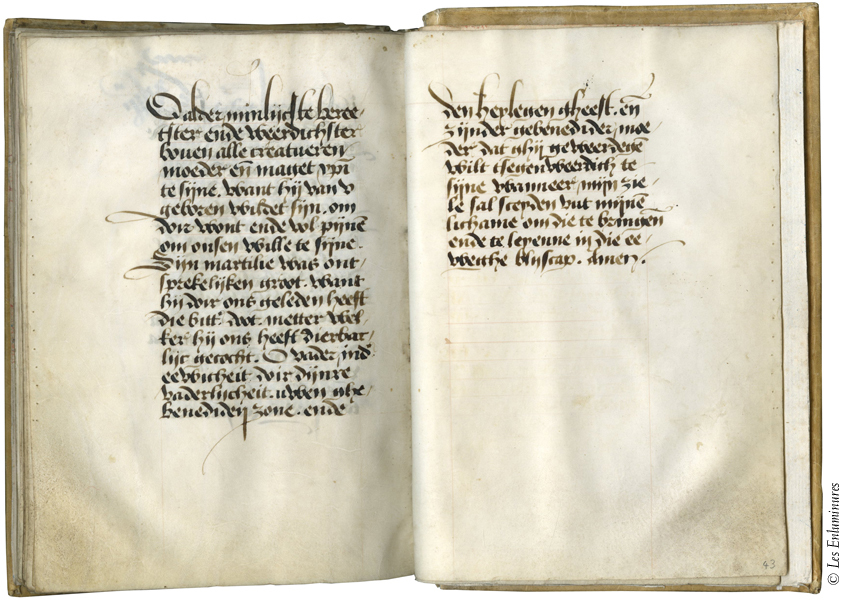 O alder minlijcste beree-
tster ende weerdichster
bouen alle creatueren
moeder en̄ maget xp̄i
te sijne. want hij van v
geboren wildet sijn. om
doir wont ende vol pijnē
om onsen wille te sijne.
Sijn martilie was ont-
sprekelijken groot. want
hij doir ons geleden heeft
die bitt' doot. metter wel-
ker hij ons heeft dierbar-
lijc gecocht. O vader, ind'
eewicheit doir dijnre
vaderlijcheit. uwen ghe-
benediden zone. ende
den heylegen gheest. en̄
zijnder gebenedider, moe-
der dat ghij geweerdegē
wilt tsegenweerdich te
sijne wanneer, mijn zie-
le sal sceyden uut mijnē
lichame om die te bringen
ende te leyenne in die ee-
weghe blijscap. Amen.
43
© Les Enluminures